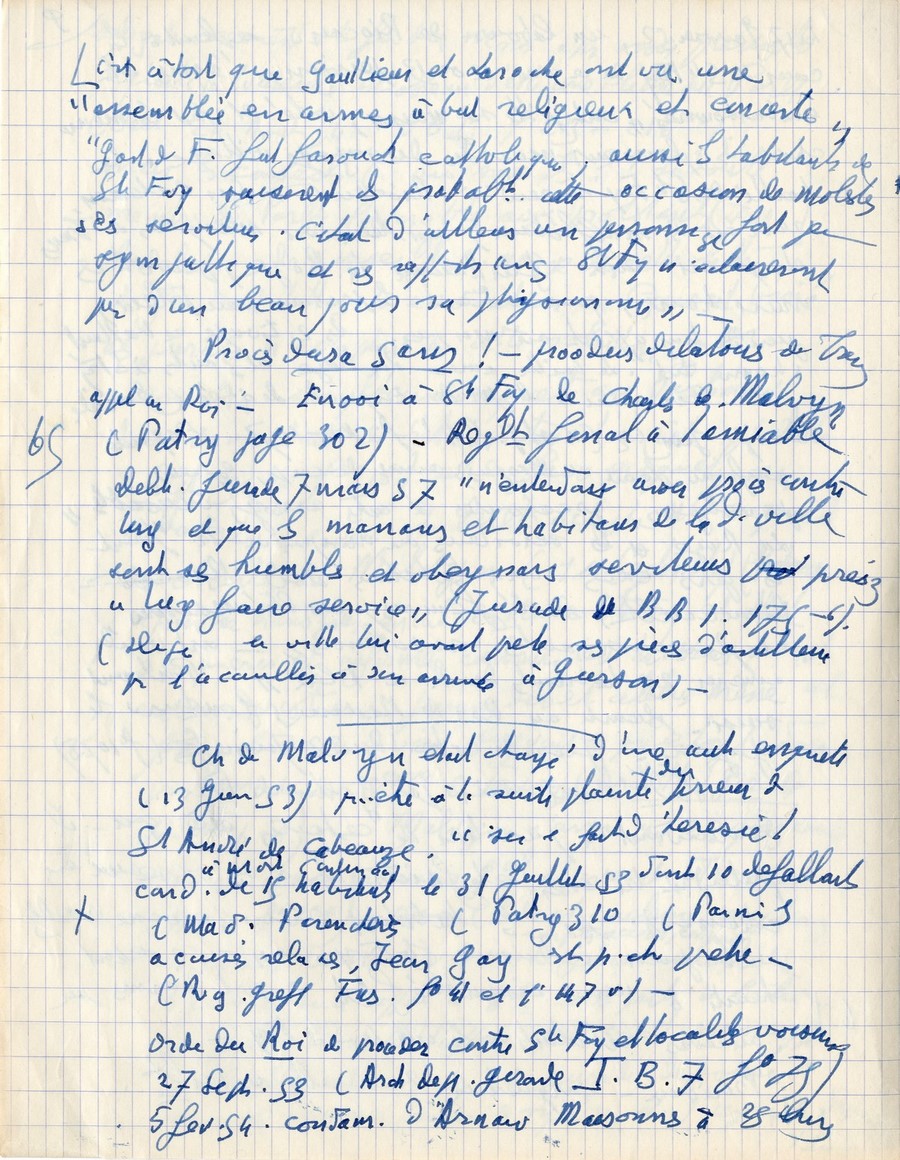 C'est à tort que Gaullieur et Laroche ont vu une
"assemblée en armes à but religieux et concerté"
"Gast. d F. fut farouch catholique, aussi ls habitants de
Ste Foy saisirent ds probablt. cette occasion de molester
ses serviteurs. C'était d'ailleurs un personnage fort peu
sympathique et ss rapports avec Ste Foy n'éclairèrent
pas d'un beau jour sa physionomie" -
Procès dura 5 ans ! - de
appl au Roi - Envoi à Ste Foy de Charles de Malvyn
(Patry page 302) - Reglt final à l'amiable
65
Delib. Jurade 7 mars 57 "n'entendans avoir procès contre
luy et que ls manans et habitans de lad. ville
sont ses humbles et obeyssans serviteurs prests
a luy faire service" (Jurade BB 1. 175-6).
( la ville lui avait prêté ses pièces d'artillerie
pr l'accueillir à son arrivée à Gurson) -
Ch de Malvyn était chargé d'une autre enquete
(13 Juin 53) à la suite plainte du prieur d
St André de Cabeauze, "sur le fait d'heresie"
à mort contumace
cond. de 15 habitants le 31 Juillet 53 dont 10 defaillants
+
( Mad. ( Patry 310 ( Parmi ls
accusés relaxés, Jean Gay
(Reg. greff fo 41 et 147 vo) -
Ordre du Roi de procéder contre Ste Foy et localités voisines
27 Sept. 53 (Arch dep. gironde I. B. 7 fo 75)
5 fev. 54. condam. d'Arnaud à 25 livres